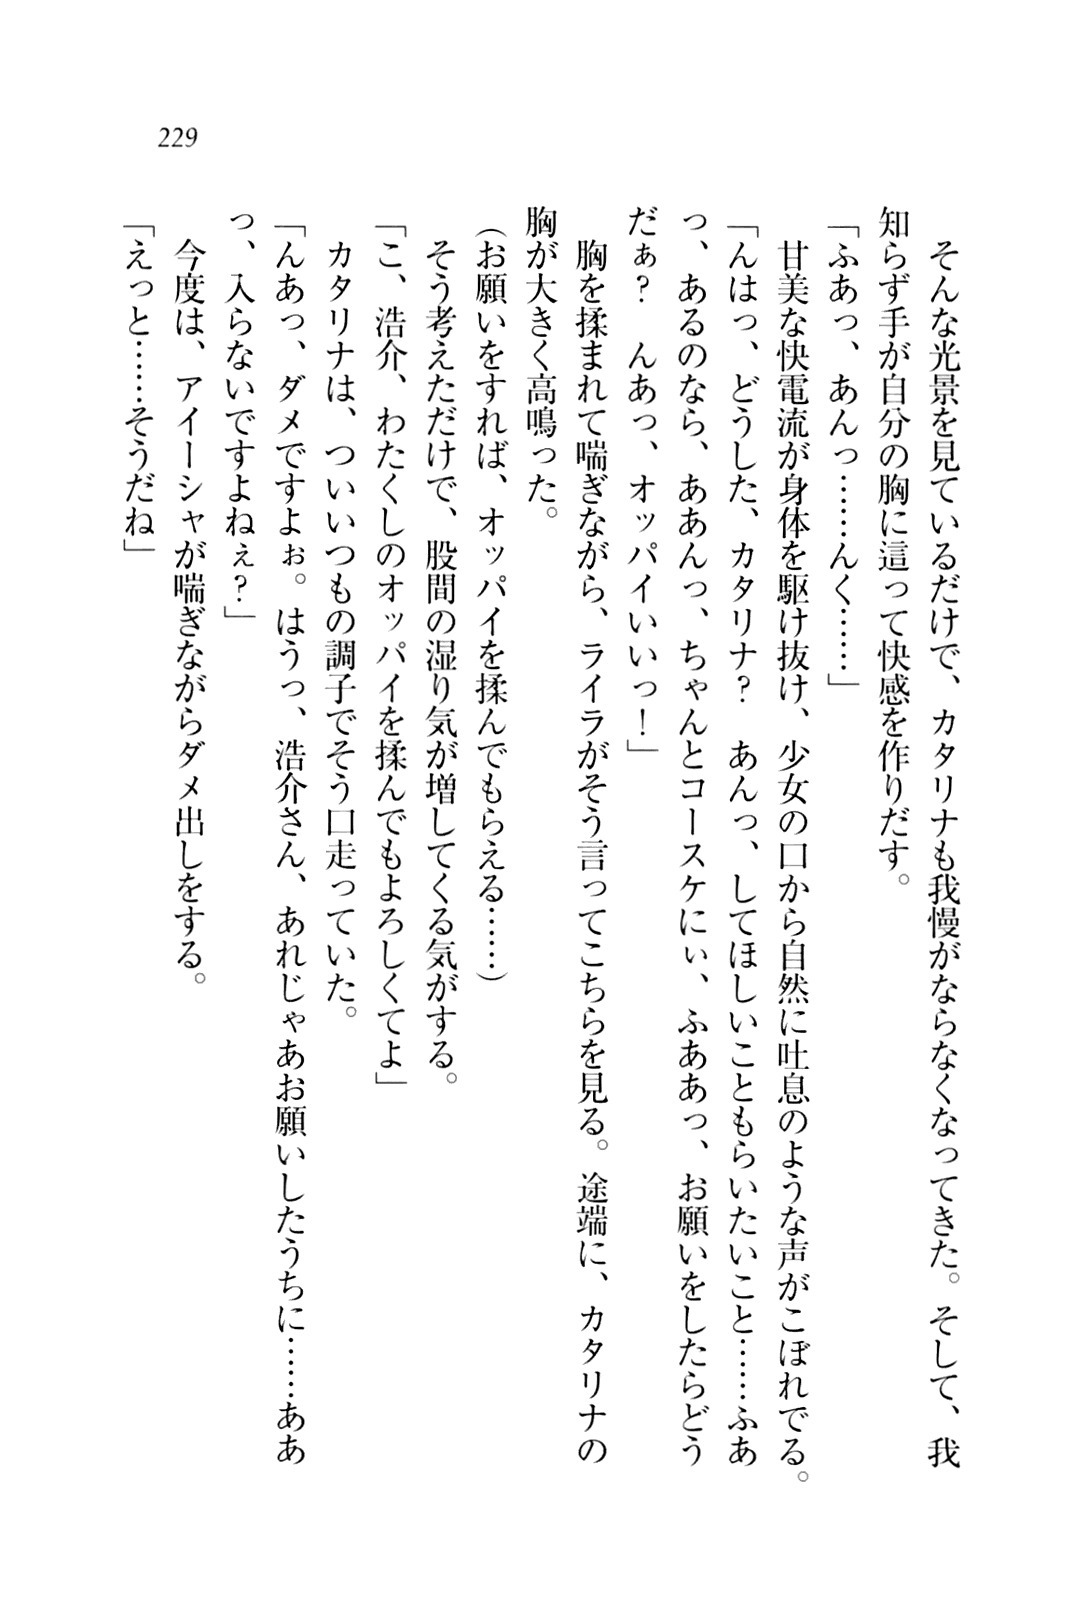 229
そんな光景を見ているだけで、カタリナも我慢がならなくなってきた。そして、我
知らず手が自分の胸に這って快感を作りだす。
「ふあっ、あんっ……んく……」
甘美な快電流が身体を駆け抜け、少女の口から自然に吐息のような声がこぼれでる。
「んはっ、どうした、カタリナ？　あんっ、してほしいこともらいたいこと……ふあ
っ、あるのなら、ああんっ、ちゃんとコースケにぃ、ふああっ、お願いをしたらどう
だぁ？　んあっ、オッパイいいっ！」
胸を揉まれて喘ぎながら、ライラがそう言ってこちらを見る。途端に、カタリナの
胸が大きく高鳴った。
(お願いをすれば、オッパイを揉んでもらえる……)
そう考えただけで、股間の湿り気が増してくる気がする。
「こ、浩介、わたくしのオッパイを揉んでもよろしくてよ」
カタリナは、ついいつもの調子でそう口走っていた。
「んあっ、ダメですよぉ。はうっ、浩介さん、あれじゃあお願いしたうちに……ああ
っ、入らないですよねぇ？」
今度は、アイーシャが喘ぎながらダメ出しをする。
「えっと……そうだね」